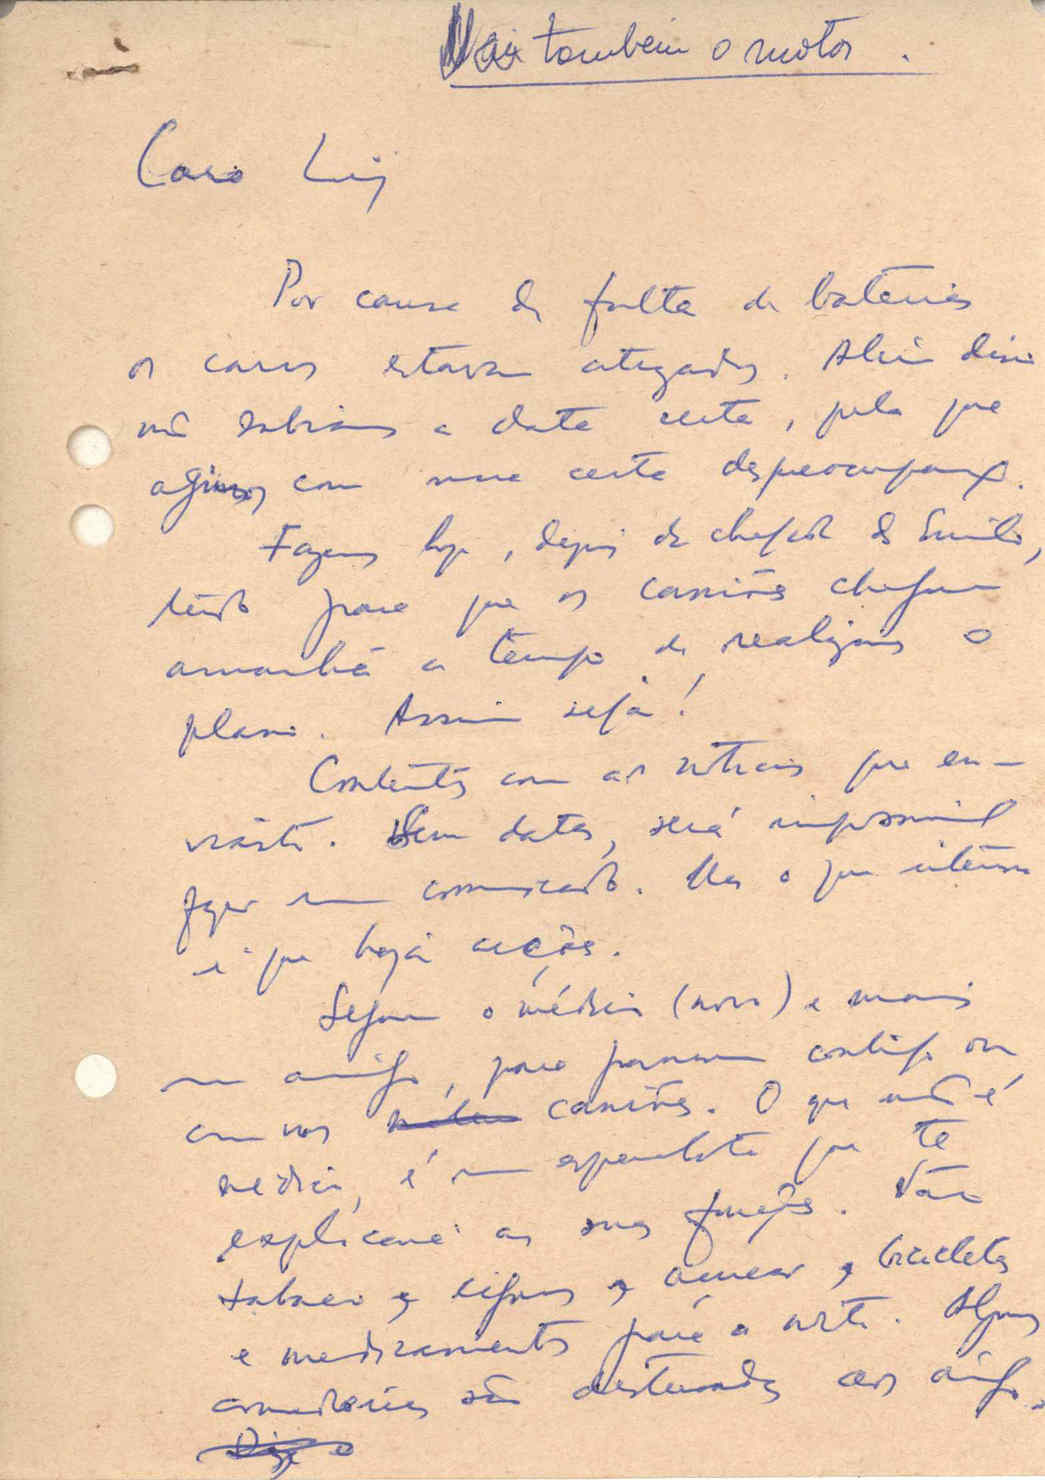 Vai também o motor.
Caro Luiz
Por causa da falta de baterias
os carros estavam atrazados. Além disso
não sabiamos a data certa, pelo que
agimos com uma certa despreocupação.
Fazemos hoje, depois da chegada do Emílio,
tudo para que os camiões cheguem
amanhã a tempo de realizarmos o
plano. Assim seja!
Contentes com as notícias que en-
viaste. Sem datas, será impossivel
fazer um comunicado. Mas o que interessa
é que haja acções.
Seguem o médico (novo) e mais
um amigo, para passarem contigo ou
com nos camiões. O que não é
médico, é um especialista que te
explicará as suas funções. Vão
tabaco, cigarros, açucar, bicicletas
e medicamentos para o norte. Alguns
comestíveis são destinados aos amigos.
Diz o